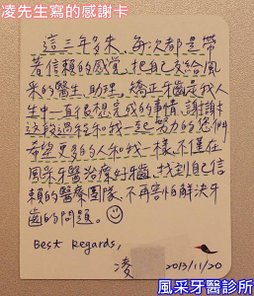 凌先生寫的感謝卡
這三年多來，每次都是帶
著信賴的感覺，把自己交給風
采的醫生、助理，矯正牙齒是我人
生中一直很想完成的事情，謝謝
這段過程和我一起努力的您們
希望更多的人和我一樣，不僅在
風采牙醫治療好牙齒，找到自己信
賴的醫療團隊，不再害怕解決牙
齒的問題。
Best Regards,
凌
2013/11/20
風采牙醫診所